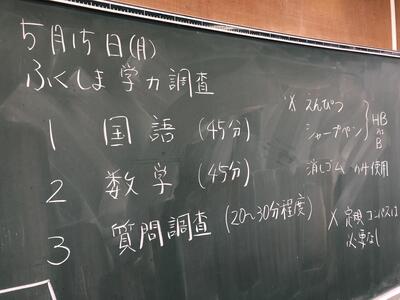 5月15日(月)
ふくしま学力調査
1 国語 (45分)
2 数学 (45分)
3 質問調査 (20〜30分程度)
※ えんぴつ
シャープペン
HB
or
B
消しゴム のみ使用
※ 定規 コンパスは
必要なし